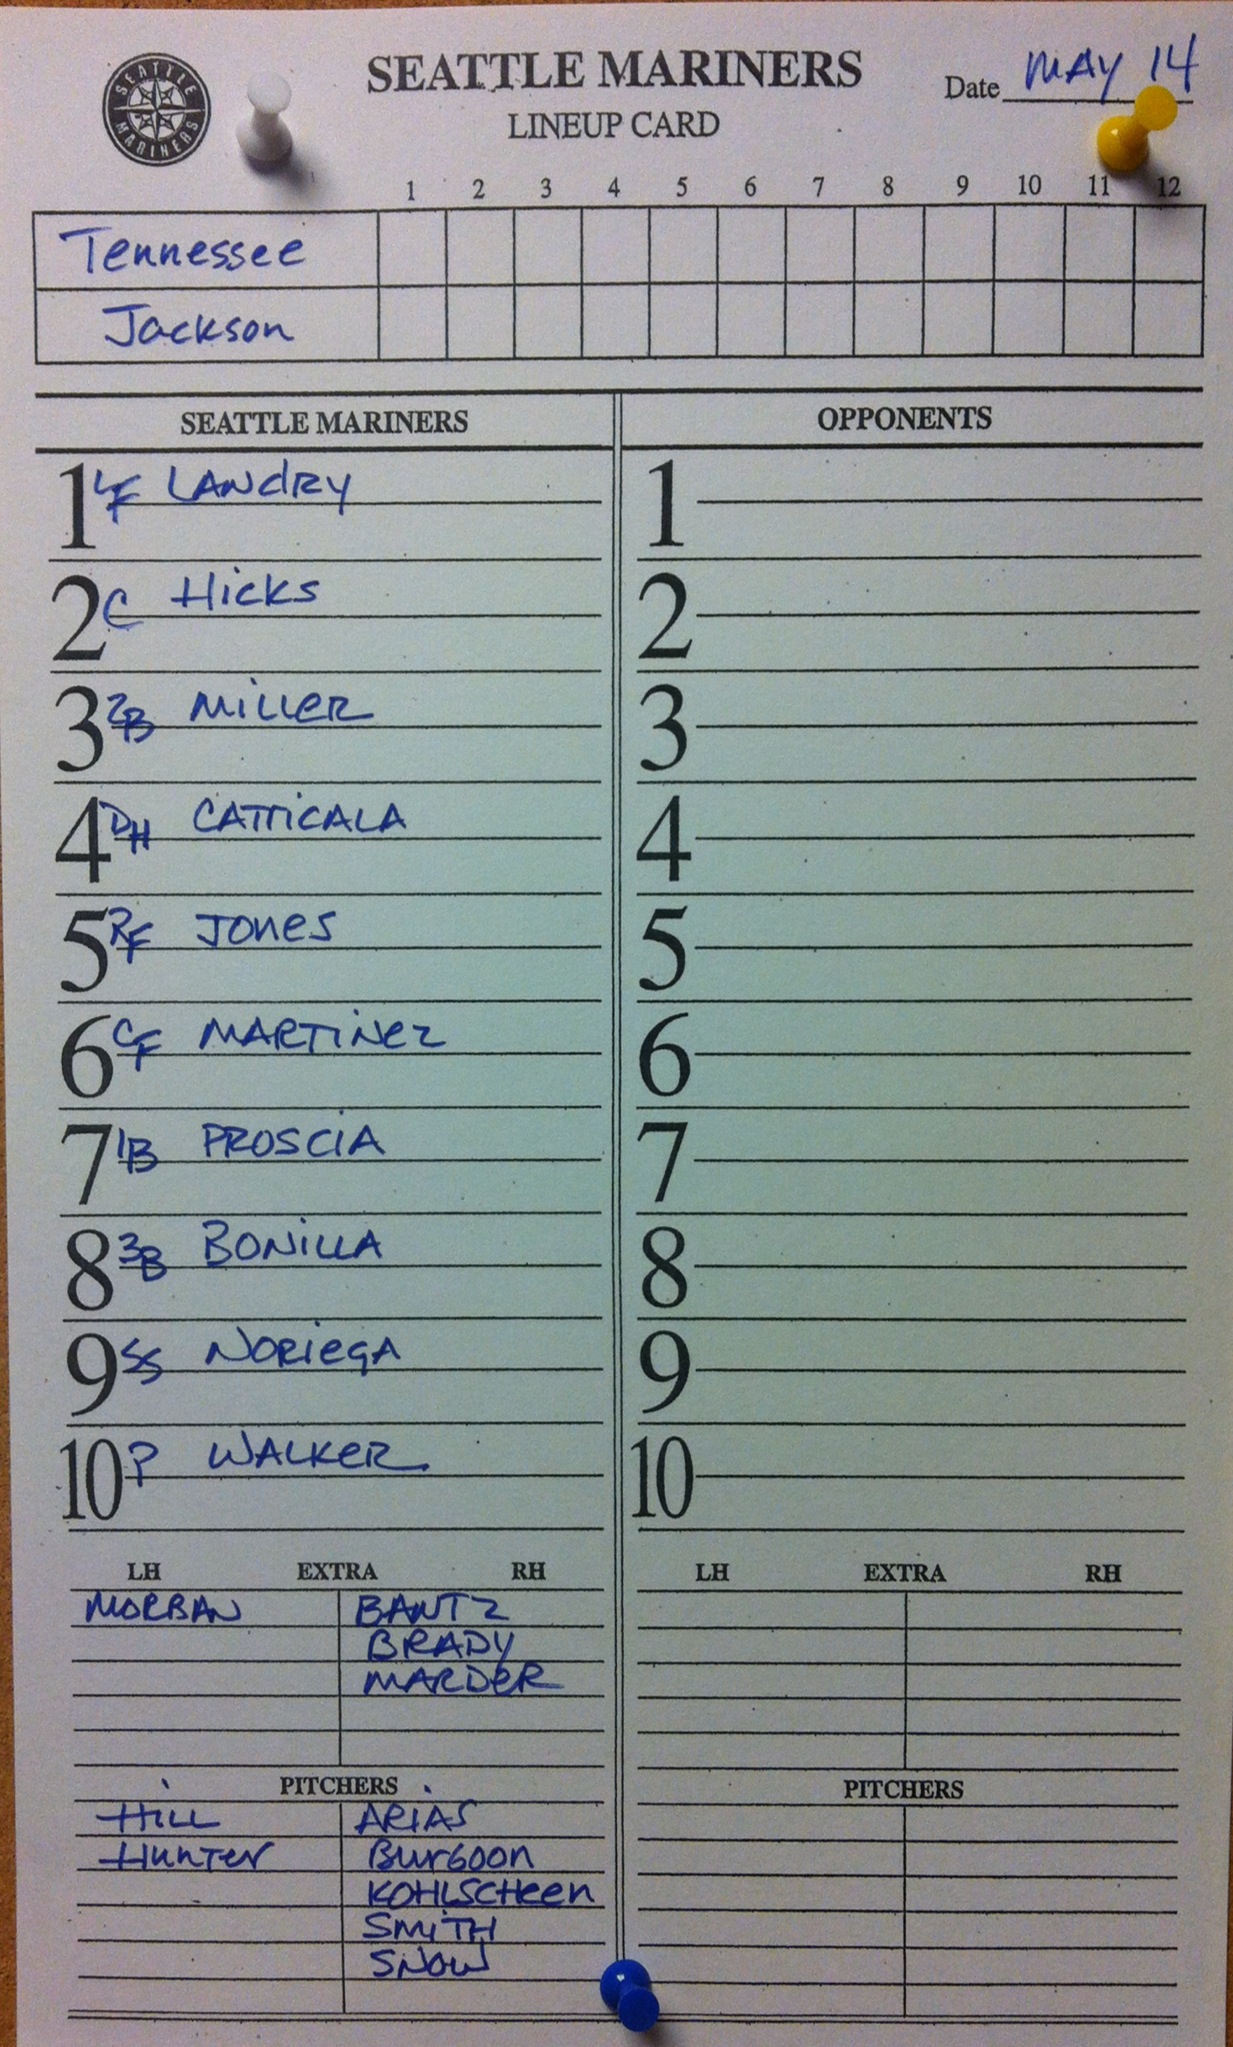 SEATTLE MARINERS
SEATTLE MARINERS
LINEUP CARD
Date MAY 14
1 2 3 4 5 6 7 8 9 10 11 12
Tennessee
Jackson
SEATTLE MARINERS
1 LF LANdRY
2 C Hicks
3 2B MiLLeR
4 DH CATTiCALA
5 RF Jones
6 CF MARTiNez
7 1B PROSCiA
8 3B BONiLLA
9 SS NORiegA
10 P WALKeR
LH EXTRA RH
MORBAN BANTZ
BRADY
MARDeR
PITCHERS
HiLL ARiAS
HunTer Burgoon
KOHLSCHeen
SMiTH
SNOW
OPPONENTS
1
2
3
4
5
6
7
8
9
10
LH EXTRA RH
PITCHERS